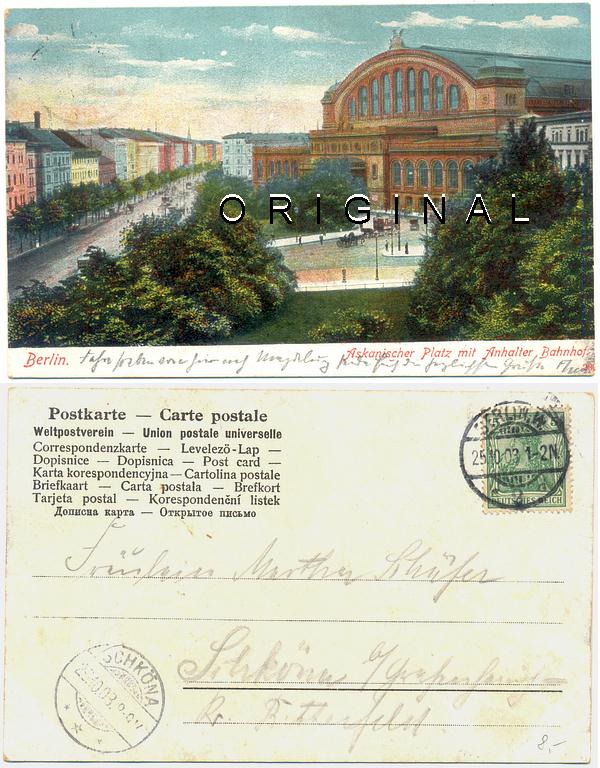 ORIGINAL
Berlin.
Askanischer Platz mit Anhalter Bahnhof.
Fahre soeben von hier nach Magdeburg
Postkarte — Carte postale
Weltpostverein — Union postale universelle
Correspondenzkarte — Levelezö-Lap —
Dopisnice — Dopisnica — Post card —
Karta korespondencyjna — Cartolina postale
Briefkaart — Carta postala — Brefkort
Tarjeta postal — Korespondenční listek
Дописна карта — Открытое письмо
BERLIN
25.10.03.1-2N
DEUTSCHES REICH
Fräulein Martha Schäfer
Schköna
Kr. Bitterfeld
SCHKÖNA
8,-